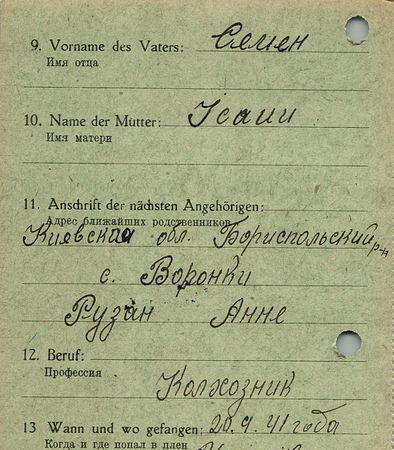 9. Vorname des Vaters: Семен
Имя отца
10. Name der Mutter:
Имя матери
11. Anschrift der nächsten Angehörigen:
Адрес ближайших родственников
Киевская обл. Бориспольский р-н
с. Воронки
Рузан Анне
12. Beruf:
Профессия
Колхозник
13 Wann und wo gefangen: 20.9.41 года
Когда и где попал в плен